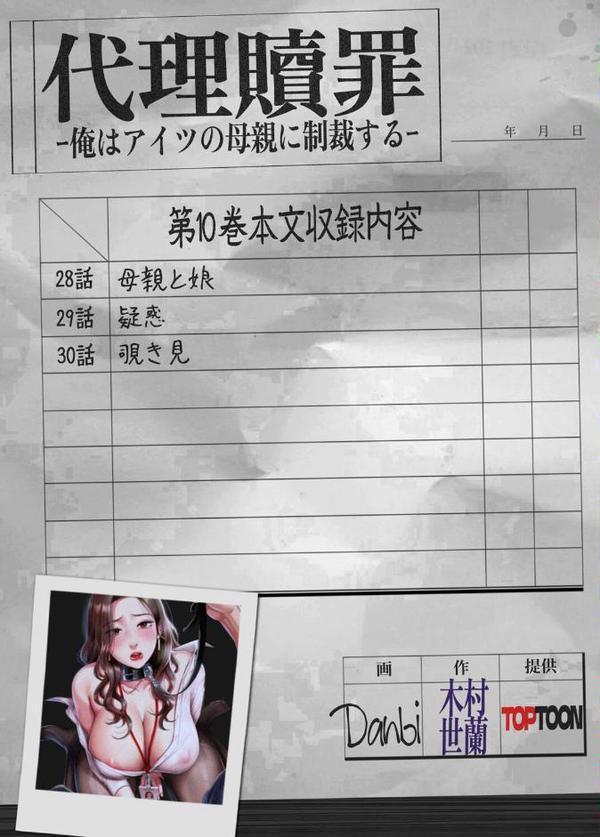 代理贖罪
-俺はアイツの母親に制裁する-
年 月 日
第10巻本文収録内容
28話 母親と娘
29話 疑惑
30話 覗き見
画 作 提供
Danbi 木村世蘭 TOPTOON